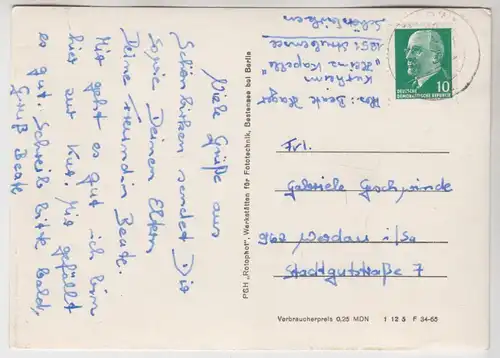 Viele Grüße aus
Schönbirken sendet Dir
sowie Deinen Eltern
Deine Freundin Beate.
Mir geht es gut ich bin
hier zur Kur. Mir gefällt
es gut. Schreib bitte bald,
Gruß Beate
PGH „Rotophot", Werkstätten für Fototechnik, Bestensee bei Berlin
Abs. Beate
Kurheim
"Heinz Kapelle"
1251
Schönbirken
DEUTSCHE
DEMOKRATISCHE REPUBLIK
10
Frl.
Gabriele Geschwinde
962 Werdau i/Sa
Stadtgutstraße 7
Verbraucherpreis 0,25 MDN 1 12 5 F 34-65